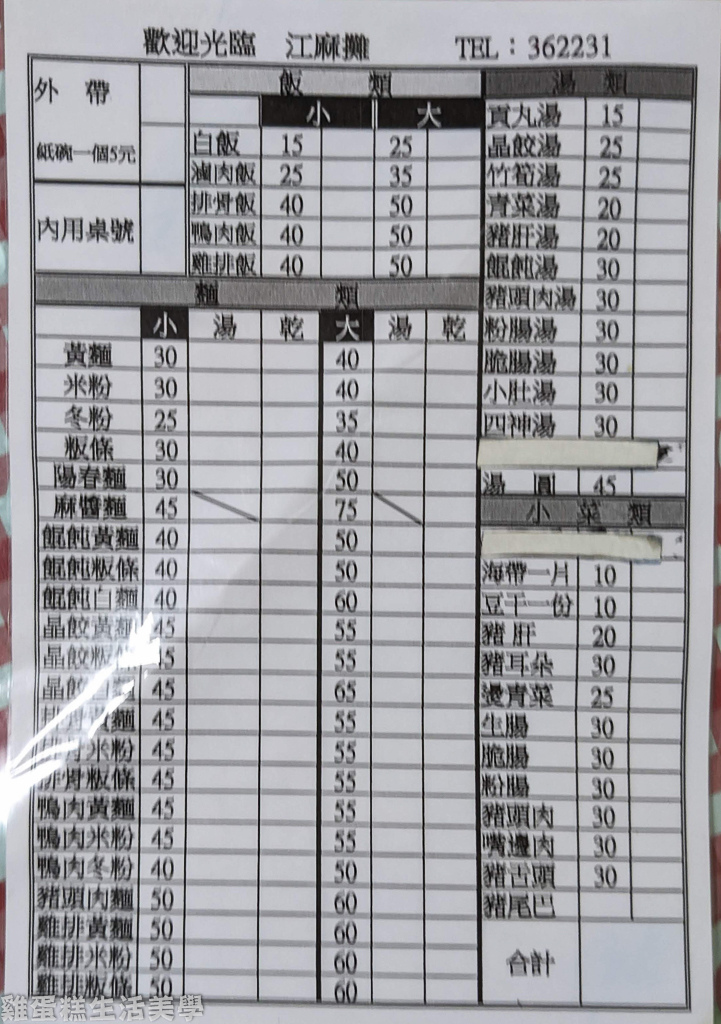 歡迎光臨 江麻攤 TEL：362231
外 帶
紙碗一個5元
內用桌號
飯 類
小 大
白飯 15 25
滷肉飯 25 35
排骨飯 40 50
鴨肉飯 40 50
雞排飯 40 50
麵 類
小 湯 乾 大 湯 乾
黃麵 30 40
米粉 30 40
冬粉 25 35
粄條 30 40
陽春麵 30 50
麻醬麵 45 75
餛飩黃麵 40 50
餛飩粄條 40 50
餛飩白麵 40 60
晶餃黃麵 45 55
晶餃粄條 45 55
晶餃白麵 45 65
排骨黃麵 45 55
排骨米粉 45 55
排骨粄條 45 55
鴨肉黃麵 45 55
鴨肉米粉 45 55
鴨肉冬粉 40 50
豬頭肉麵 50 60
雞排黃麵 50 60
雞排米粉 50 60
雞排粄條 50 60
湯 類
貢丸湯 15
晶餃湯 25
竹筍湯 25
青菜湯 20
豬肝湯 20
餛飩湯 30
豬頭肉湯 30
粉腸湯 30
脆腸湯 30
小肚湯 30
四神湯 30
湯 圓 45
小 菜 類
海帶一片 10
豆干一份 10
豬肝 20
豬耳朵 30
燙青菜 25
生腸 30
脆腸 30
粉腸 30
豬頭肉 30
嘴邊肉 30
豬舌頭 30
豬尾巴
合計
雞蛋糕生活美學